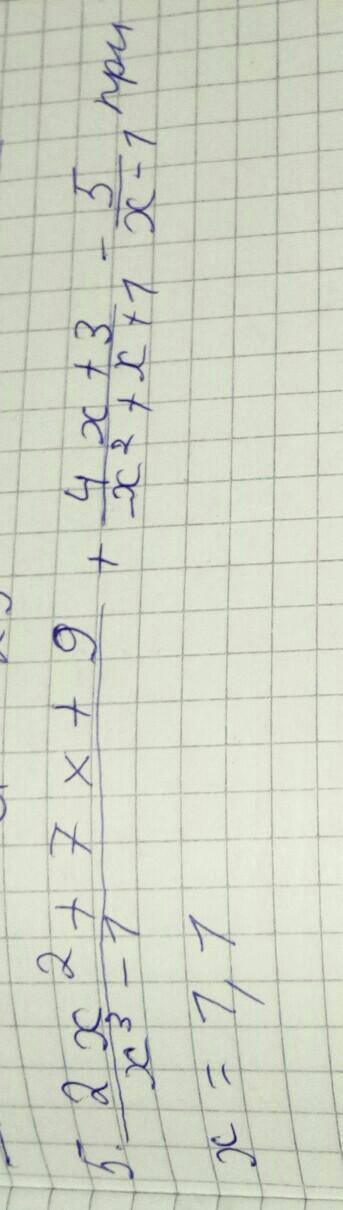 5. \frac{2x^2 + 7x + 9}{x^3 - 1} + \frac{4x + 3}{x^2 + x + 1} - \frac{5}{x - 1} при
x = 1,1